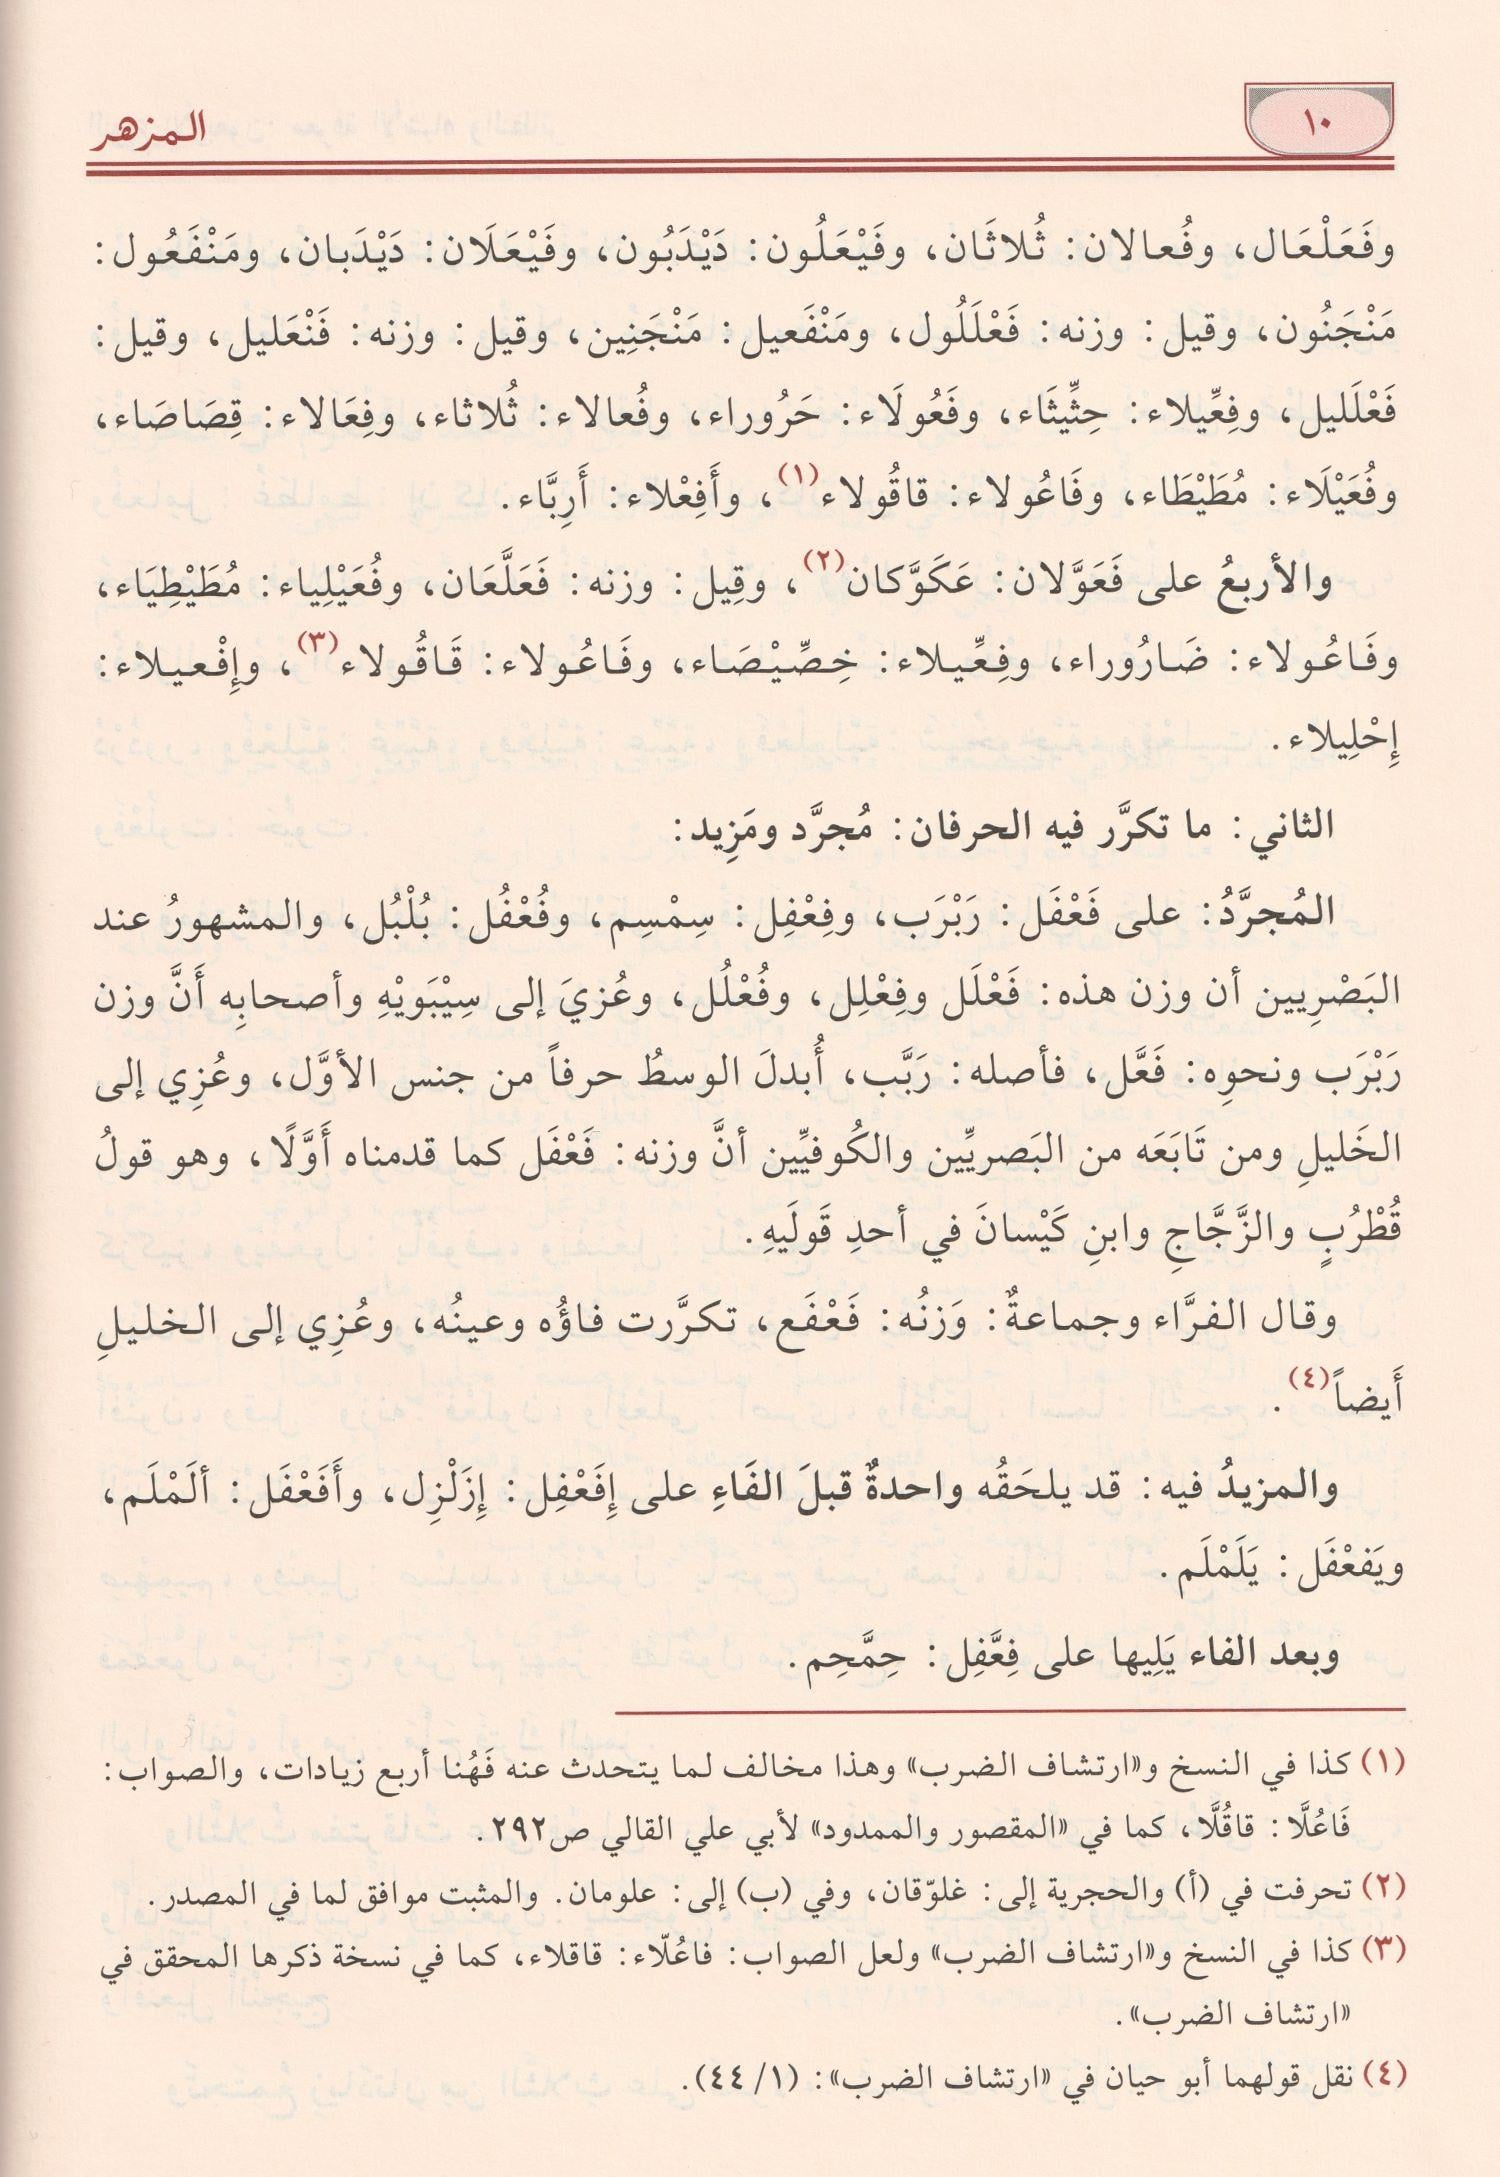 ١٠
المزهر
وفَعَلْعَال، وفُعالان: ثُلاثَان، وفَيْعَلُون: دَيْدَبُون، وفَيْعَلَان: دَيْدَبان، ومَنْفَعُول:
مَنْجَنُون، وقيل: وزنه: فَعْلَلُول، ومَنْفَعيل: مَنْجَنِين، وقيل: وزنه: فَنْعَليل، وقيل:
فَعْلَليل، وفِعِّيلاء: حِثِّيثَاء، وفَعُولَاء: حَرُوراء، وفُعالاء: ثُلاثاء، وفِعَالاء: قِصَاصَاء،
وفُعَيْلَاء: مُطَيْطَاء، وفَاعُولاء: قاقُولاء(١)، وأَفِعْلاء: أَرِبَّاء.
والأربعُ على فَعَوَّلان: عَكَوَّكان(٢)، وقِيل: وزنه: فَعَلَّعَان، وفُعَيْلِياء: مُطَيْطِيَاء،
وفَاعُولاء: ضَارُوراء، وفِعِّيلاء: خِصِّيْصَاء، وفَاعُولاء: قَاقُولاء(٣)، وإِفْعيلاء:
إِحْلِيلاء.
الثاني: ما تكرَّر فيه الحرفان: مُجرَّد ومَزِيد:
المُجرَّدُ: على فَعْفَل: رَبْرَب، وفِعْفِل: سِمْسِم، وفُعْفُل: بُلْبُل، والمشهورُ عند
البَصْرِيين أن وزن هذه: فَعْلَل وفِعْلِل، وفُعْلُل، وعُزيَ إلى سِيْبَوَيْهِ وأصحابِه أَنَّ وزن
رَبْرَب ونحوِه: فَعَّل، فأصله: رَبَّب، أُبدلَ الوسطُ حرفاً من جنس الأوَّل، وعُزِي إلى
الخَليلِ ومن تَابَعَه من البَصريِّين والكُوفيِّين أنَّ وزنه: فَعْفَل كما قدمناه أَوَّلًا، وهو قولُ
قُطْرُبٍ والزَّجَّاجِ وابنِ كَيْسانَ في أحدِ قَولَيهِ.
وقال الفرَّاء وجماعةٌ: وَزنُه: فَعْفَع، تكرَّرت فاؤُه وعينُه، وعُزِي إلى الخليلِ
أَيضاً(٤).
والمزيدُ فيه: قد يلحَقُه واحدةٌ قبلَ الفَاءِ على إِفَعْفِل: إِزَلْزِل، وأَفَعْفَل: ألَمْلَم،
ويَفعْفَل: يَلَمْلَم.
وبعد الفاء يَلِيها على فِعَّفِل: حِمَّحِم.
(١) كذا في النسخ و«ارتشاف الضرب» وهذا مخالف لما يتحدث عنه فَهُنا أربع زيادات، والصواب:
فَاعُلَّا: قاقُلَّا، كما في «المقصور والممدود» لأبي علي القالي ص٢٩٢.
(٢) تحرفت في (أ) والحجرية إلى: غلوّقان، وفي (ب) إلى: علومان. والمثبت موافق لما في المصدر.
(٣) كذا في النسخ و«ارتشاف الضرب» ولعل الصواب: فاعُلّاء: قاقلاء، كما في نسخة ذكرها المحقق في
«ارتشاف الضرب».
(٤) نقل قولهما أبو حيان في «ارتشاف الضرب»: (١/ ٤٤).